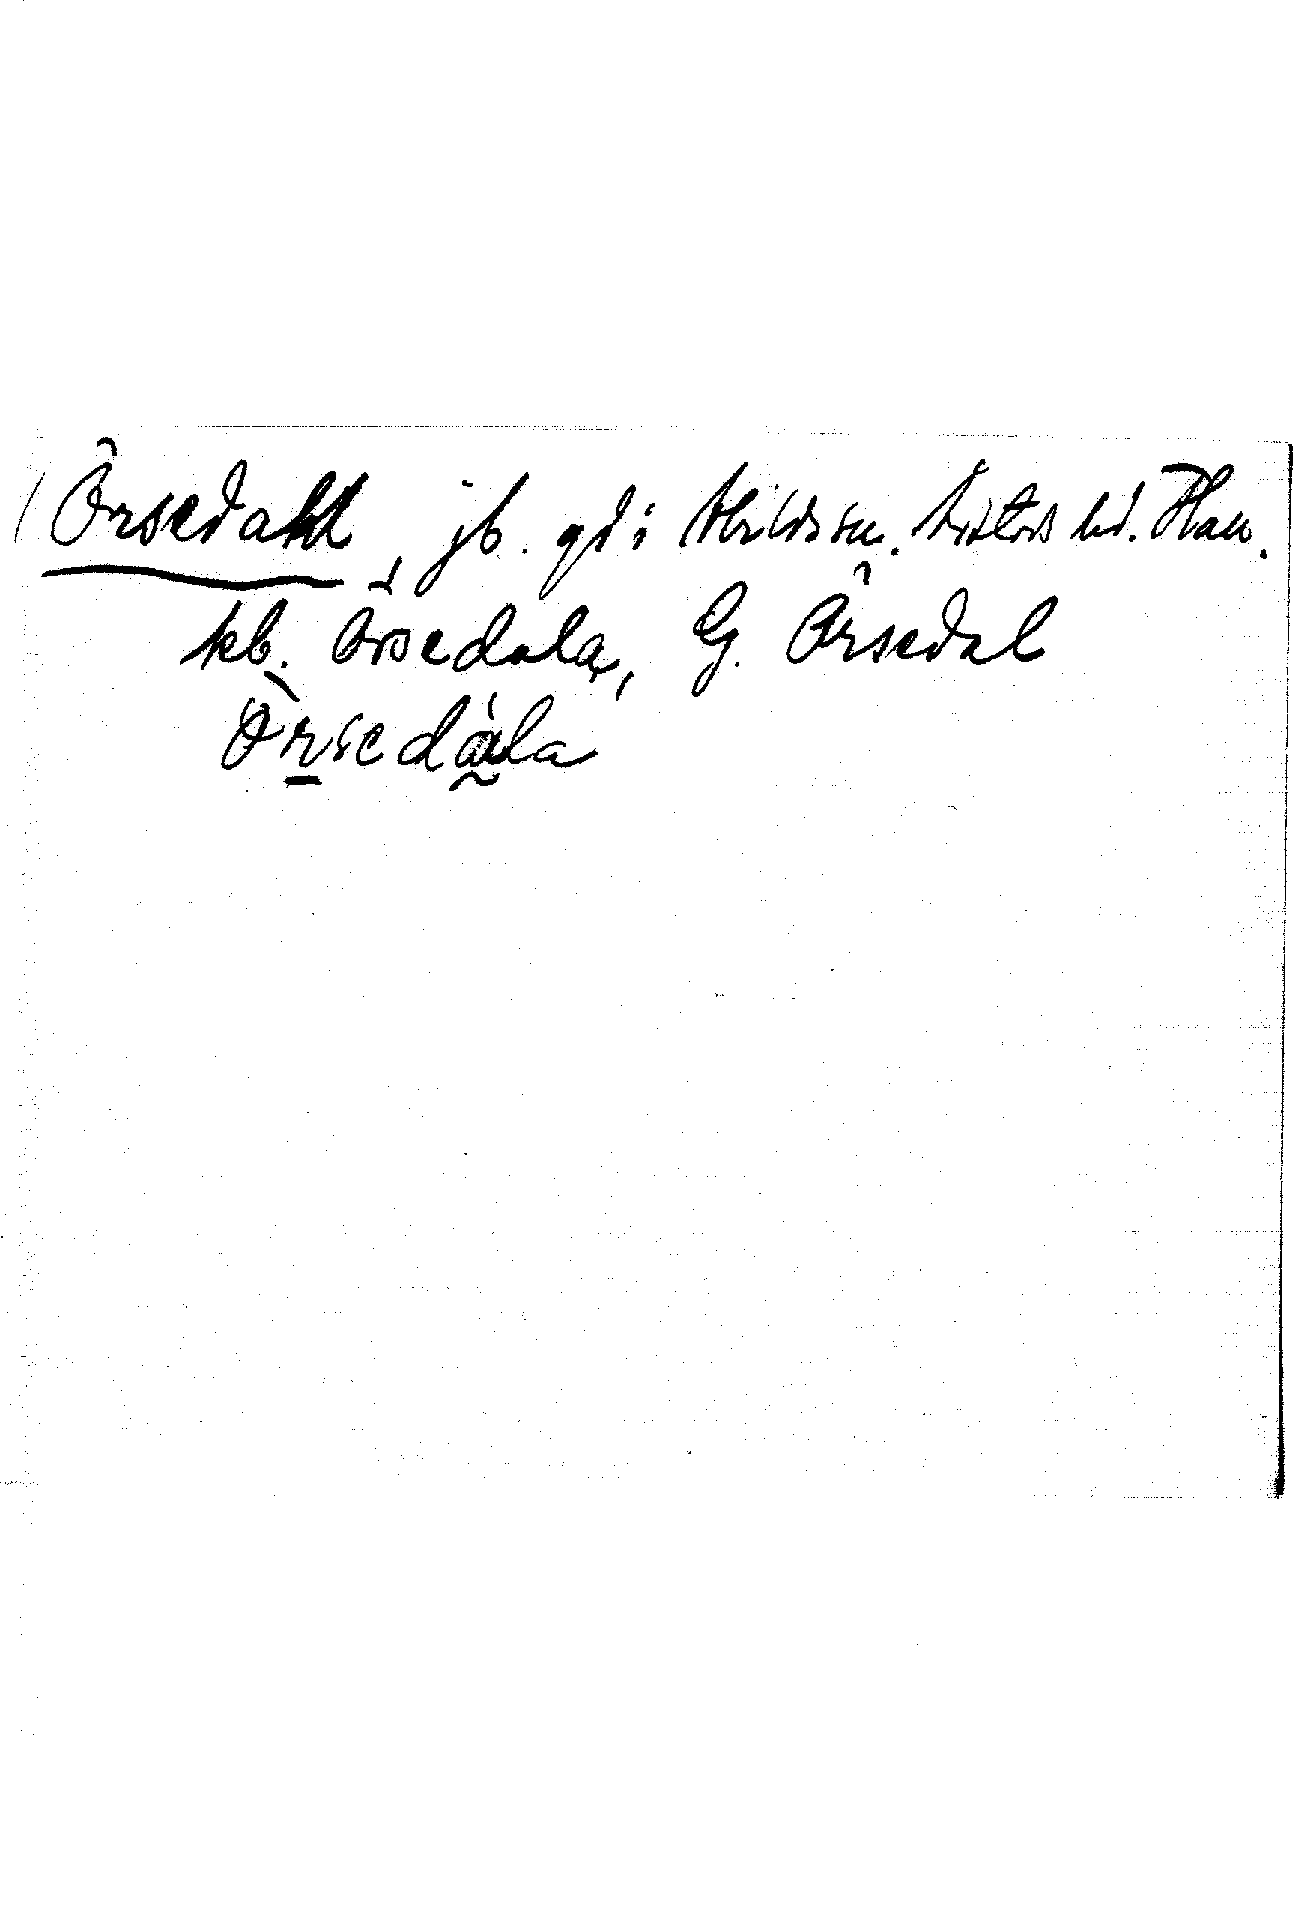 Örsedahl, jb. gd i Abilds sn. Årstads hd. Hall.
kb. Örsedala, G. Örsedal
Òrsedála